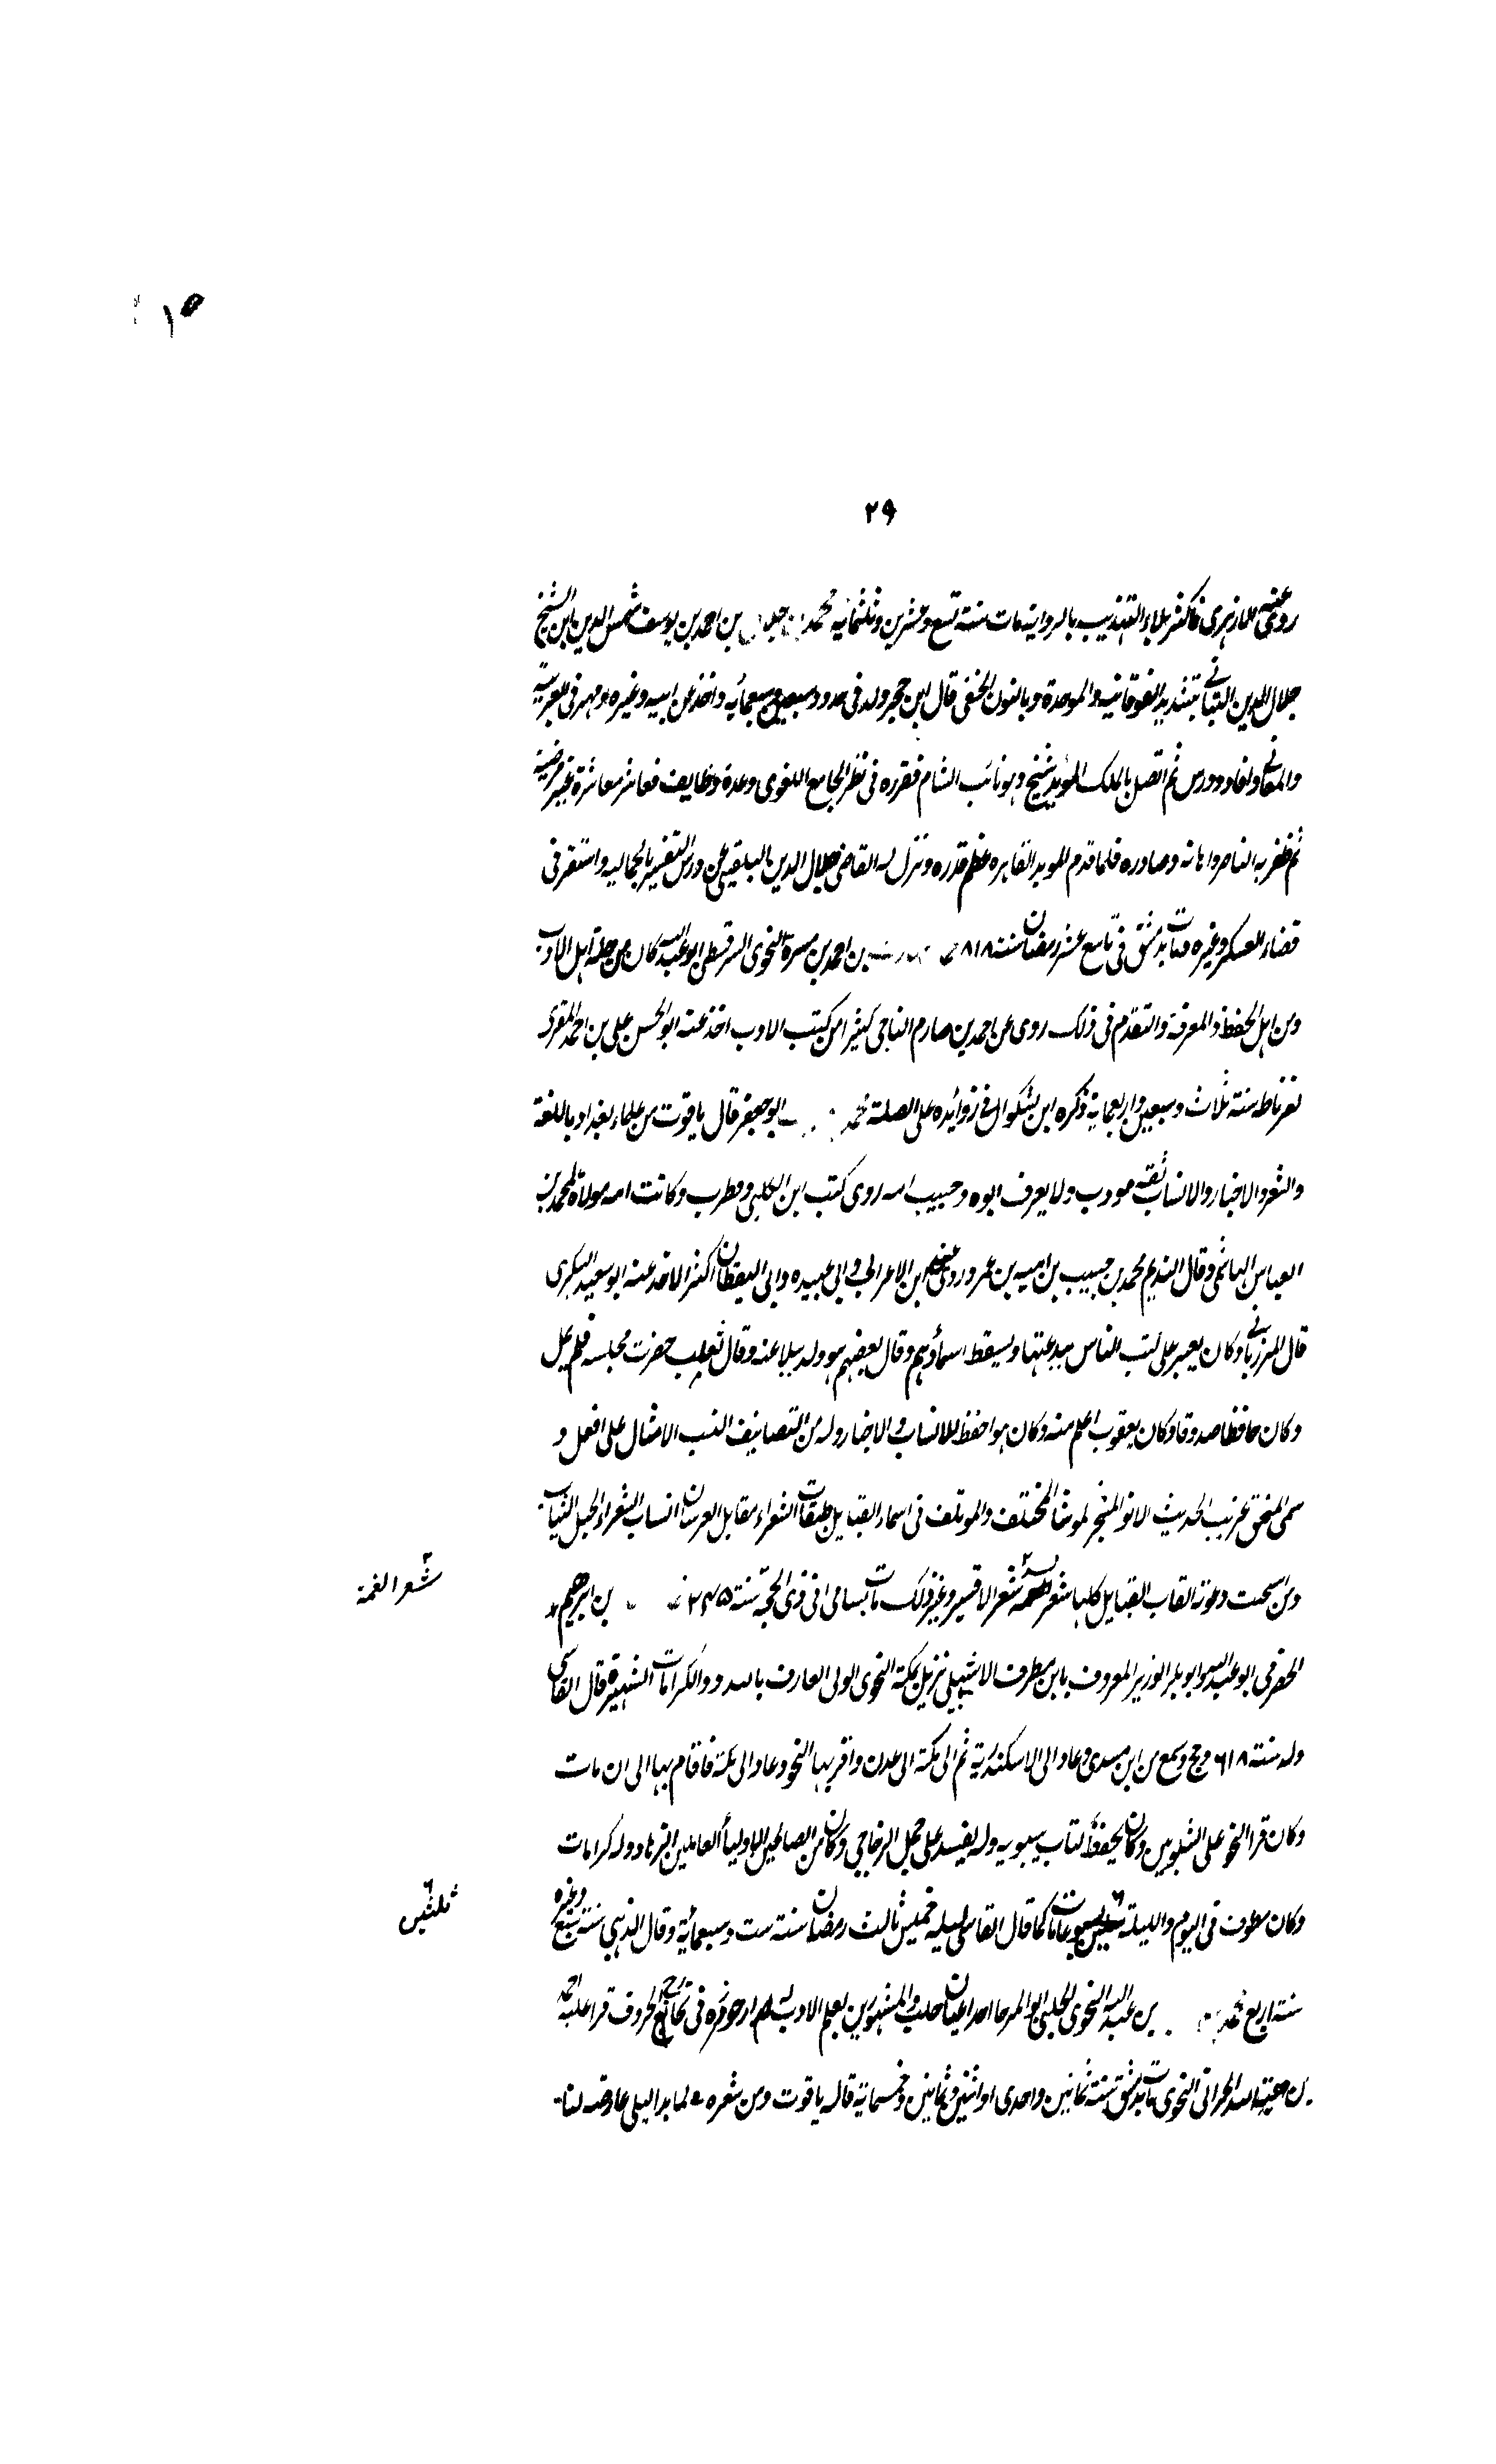 ٢٩
روى عنه الازهرى فاكثر بلاء التهذيب بالرواية مات سنة تسع وعشرين وثلثماية محمد بن جلال بن احمد بن يوسف شمس الدين ابن الشيخ
جلال الدين التبانى بتشديد الفوقانية والموحدة وبالنون الحنفى قال ابن حجر ولد فى حدود سبعين وسبعمائة واخذ عن ابيه وغيره ومهر فى العربية
والمعانى وافاد ودرس ثم اتصل بالملك المؤيد شيخ وهو نائب الشام فقرره فى نظر الجامع الاموى وعدة وظايف فعاشر معاشرة غير مرضية
ثم ظفر به الناصر واهانه وصادره فلما قدم المويد القاهره عظم قدره ونزل له القاضى جلال الدين البلقينى عن درس التفسير بالجماليه واستقر فى
قضاء العسكر وغيره مات بدمشق فى تاسع عشر رمضان سنت ٨١٨ بن احمد بن مسرة النحوى السرقسطى ابو عبد الله كان من جلة اهل الادب
ومن اهل الحفظ والمعرفة والتقدم فى ذلك روى عن احمد بن صارم الناجى كثيرا من كتب الادب اخذ عنه ابو الحسن على بن احمد المقرى
بغرناطه سنة ثلاث وسبعين واربعماية ذكره ابن بشكوال فى زوائده على الصلة محمد ابو جعفر قال ياقوت من علماء بغداد باللغة
والشعر والاخبار والانساب ثقه مودب ولا يعرف ابوه وحبيب امه روى كتب ابن الكلبى وقطرب وكانت امه مولاة لمحمد بن
العباس الهاشمى وقال النديم محمد بن حبيب بن اميه بن عمرو روى عن ابن الاعرابى وابى عبيده وابى اليقظان اكثر الاخذ عنه ابو سعيد السكرى
قال المرزبانى وكان يغير على كتب الناس فيدعيها ويسقط اسماؤهم وقال بعضهم هو ولد ملاعنه وقال ثعلب حضرت مجلسه فلم يمل
وكان حافظا صدوقا وكان يعقوب اعلم منه وكان هو احفظ للانساب والاخبار وله من التصانيف النسب الامثال على افعل و
سمى المنمق غريب الحديث الانوا المشجر الموشا المختلف والموتلف فى اسماء القبايل طبقات الشعراء مقاتل الفرسان انساب الشعراء الخيل النبات
ومن استجيبت دعوته القاب القبايل كلها شعر شعر الاقيشر وغير ذلك مات بسامرا فى ذى الحجة سنة ٢٤٥ بن ابرهيم
شعر الغمة
الحضرمى ابو عبد الله وابو بكر الوزير المعروف بابن مطرف الاشبيلى نزيل مكة النحوى الولى العارف بالله ذو الكرامات الشهيرة قال الفاسى
ولد سنت ٦١٨ وحج وسمع من ابن مسدى وعاد الى الاسكندرية ثم الى مكة الى عدن واقرا بها النحو وعاد الى مكة فاقام بها الى ان مات
وكان قرا النحو على الشلوبين وكان يحفظ كتاب سيبويه وله تقييد على جمل الزجاجى وكان من الصالحين الاولياء العاملين الزهاد وله كرامات
وكان يطوف فى اليوم والليلة سبعين اسبوعا مات كما قال الفاسى ليله خميس ثالث رمضان سنة ست وسبعماية وقال الذهبى سنة سبع وغيره
ثلثين
سنة اربع محمد بن عبد الله النحوى الحلبى ابو المرجا احد اعيان حلب والمشهورين بعلم الادب له ارجوزه فى مخارج الحروف قرا عليه احمد
بن هبة الله الحرانى النحوى مات بدمشق سنة ثمانين واحدى او اثنتين وثمانين وخمسماية قاله ياقوت ومن شعره لما بدا ليلى عارضه لنا